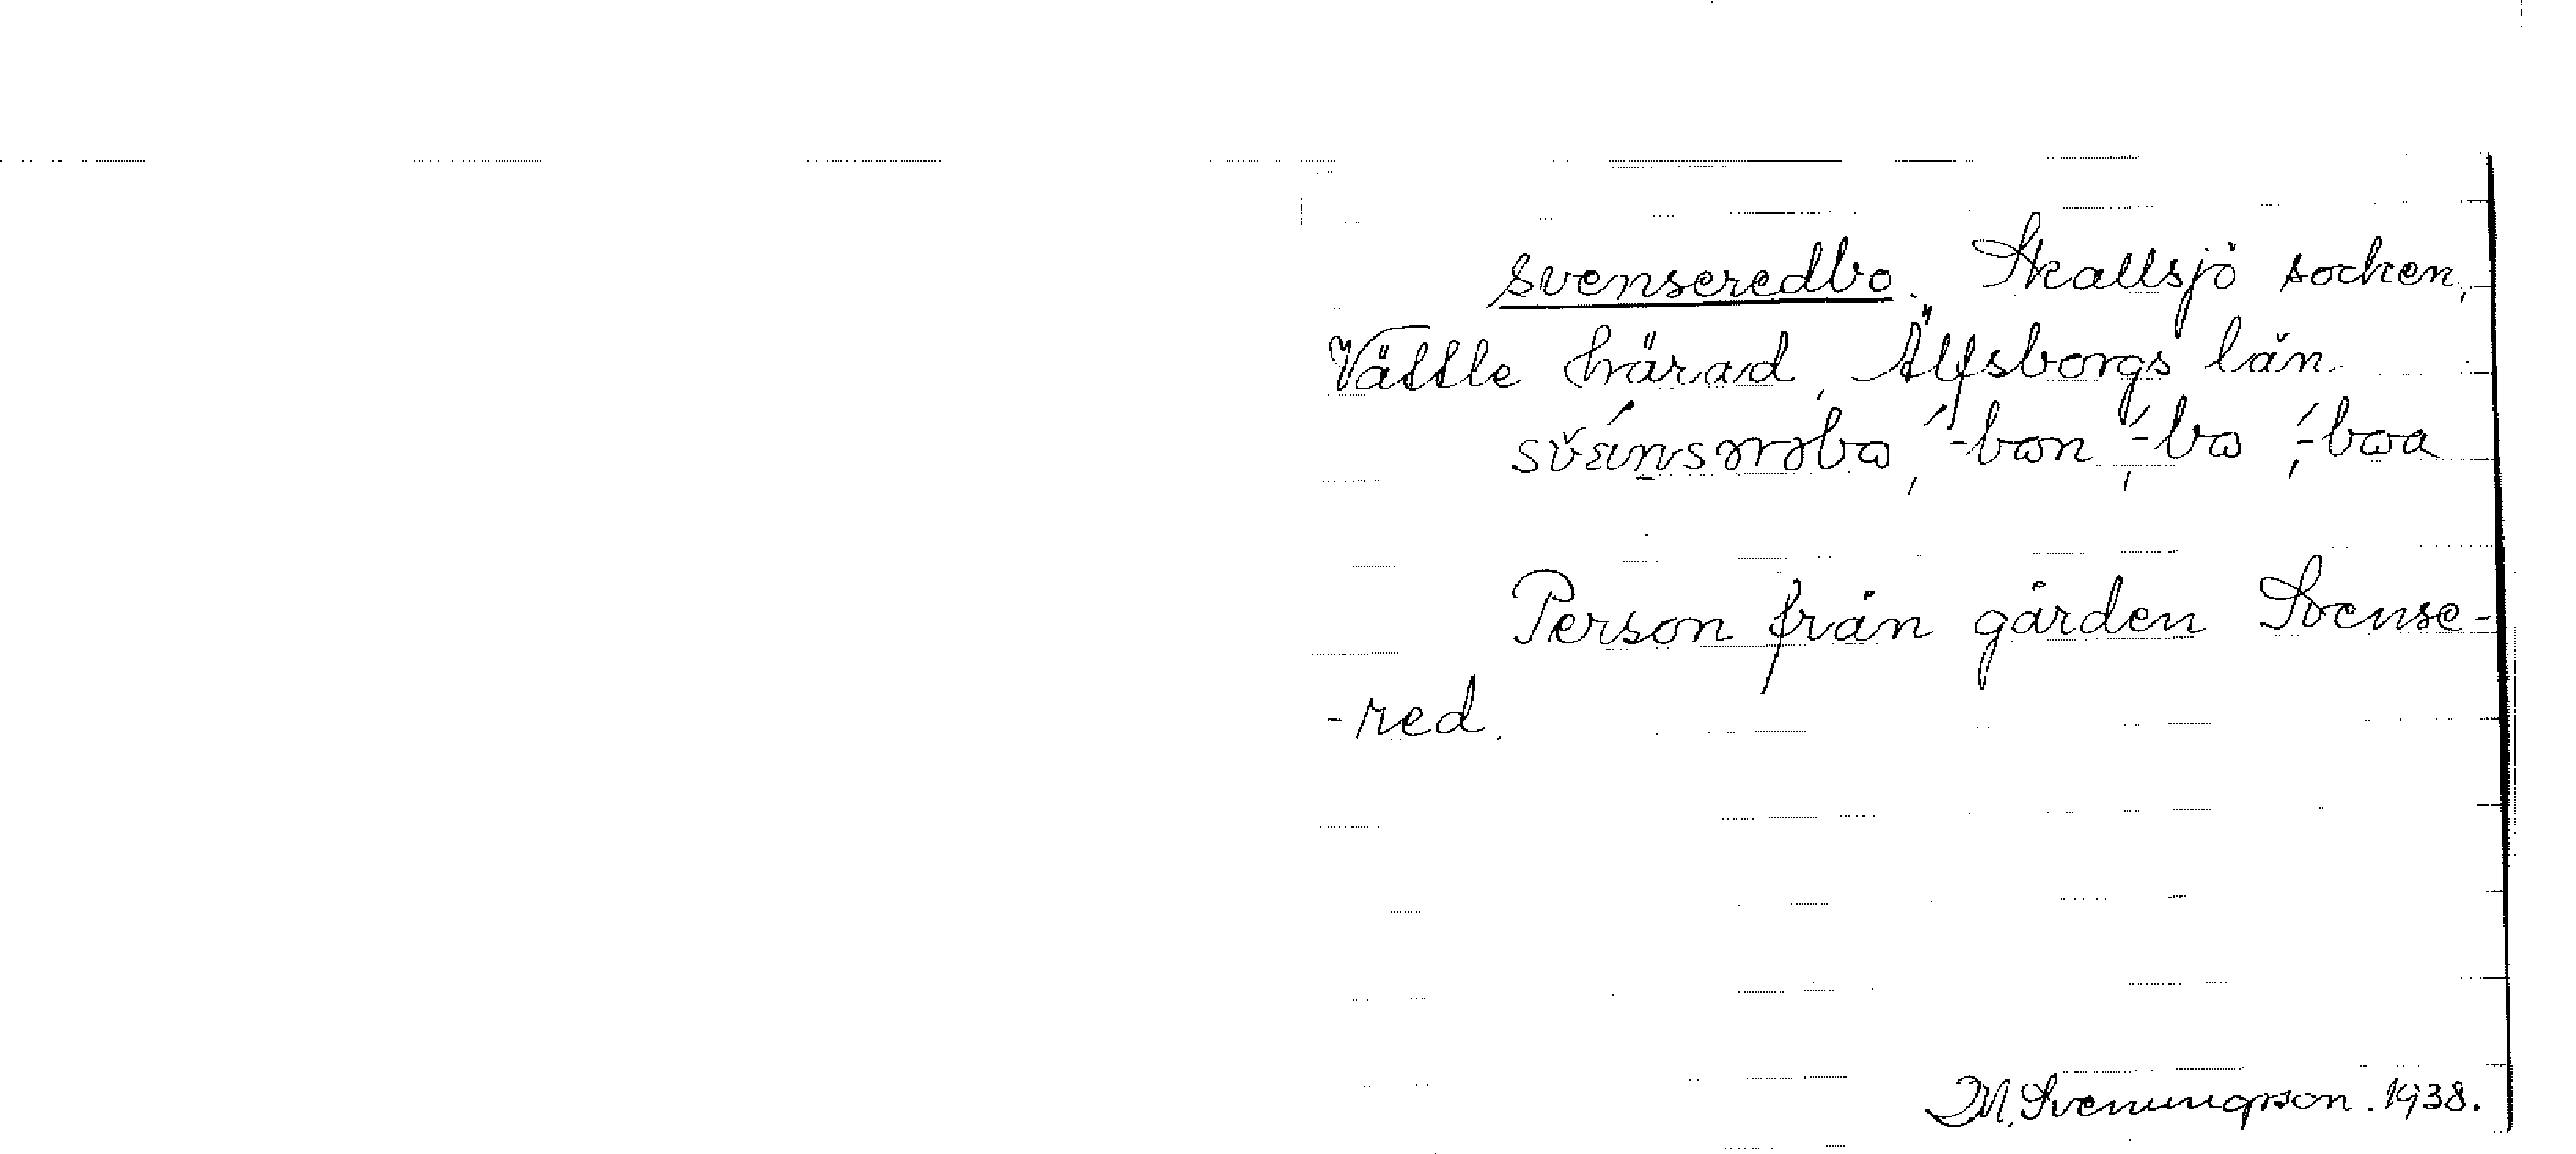 svenseredbo. Skallsjö socken,
Vättle härad, Älfsborgs län
-bon, -bo, -boa
Person från gården Svense-
-red.
M. Svenungsson. 1938.